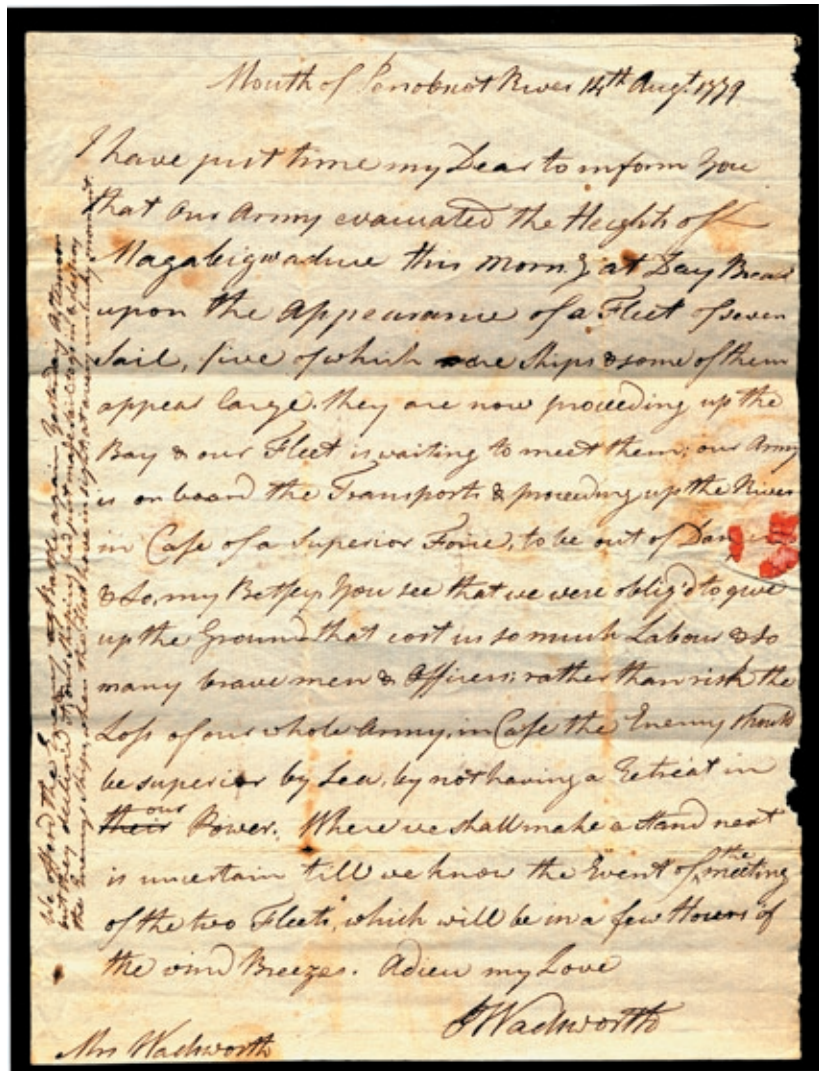 Mouth of Penobscot River 14th Augt. 1779
I have just time my Dear to inform You
that our Army evacuated the Heights of
Magabigwaduce this Morng. at Day Break
upon the Appearance of a Fleet of seven
Sail, five of which are Ships & some of them
appear large. they are now proceeding up the
Bay & our Fleet is waiting to meet them; our Army
is on board the Transports & proceeding up the River
in Case of a Superior Force, to be out of Danger
& So, my Betsey, You see that we were oblig'd to give
up the Ground that cost us so much Labour & so
many brave men & Officers; rather than risk the
Loss of our whole Army, in Case the Enemy should
be superior by Sea, by not having a Retreat in
their our Power. Where we shall make a Stand next
is uncertain till we know the Event of the meeting
of the two Fleets, which will be in a few Hours if
the wind Breezes. Adieu my Love
PWadsworth
Mrs Wadsworth
We offerd the Enemy Battle again Yesterday Afternoon
but they declined it, our Shiping had just made Sail to go in & destroy
the Enemy's Ships, when the Fleet hove in sight, at a very unlucky moment.